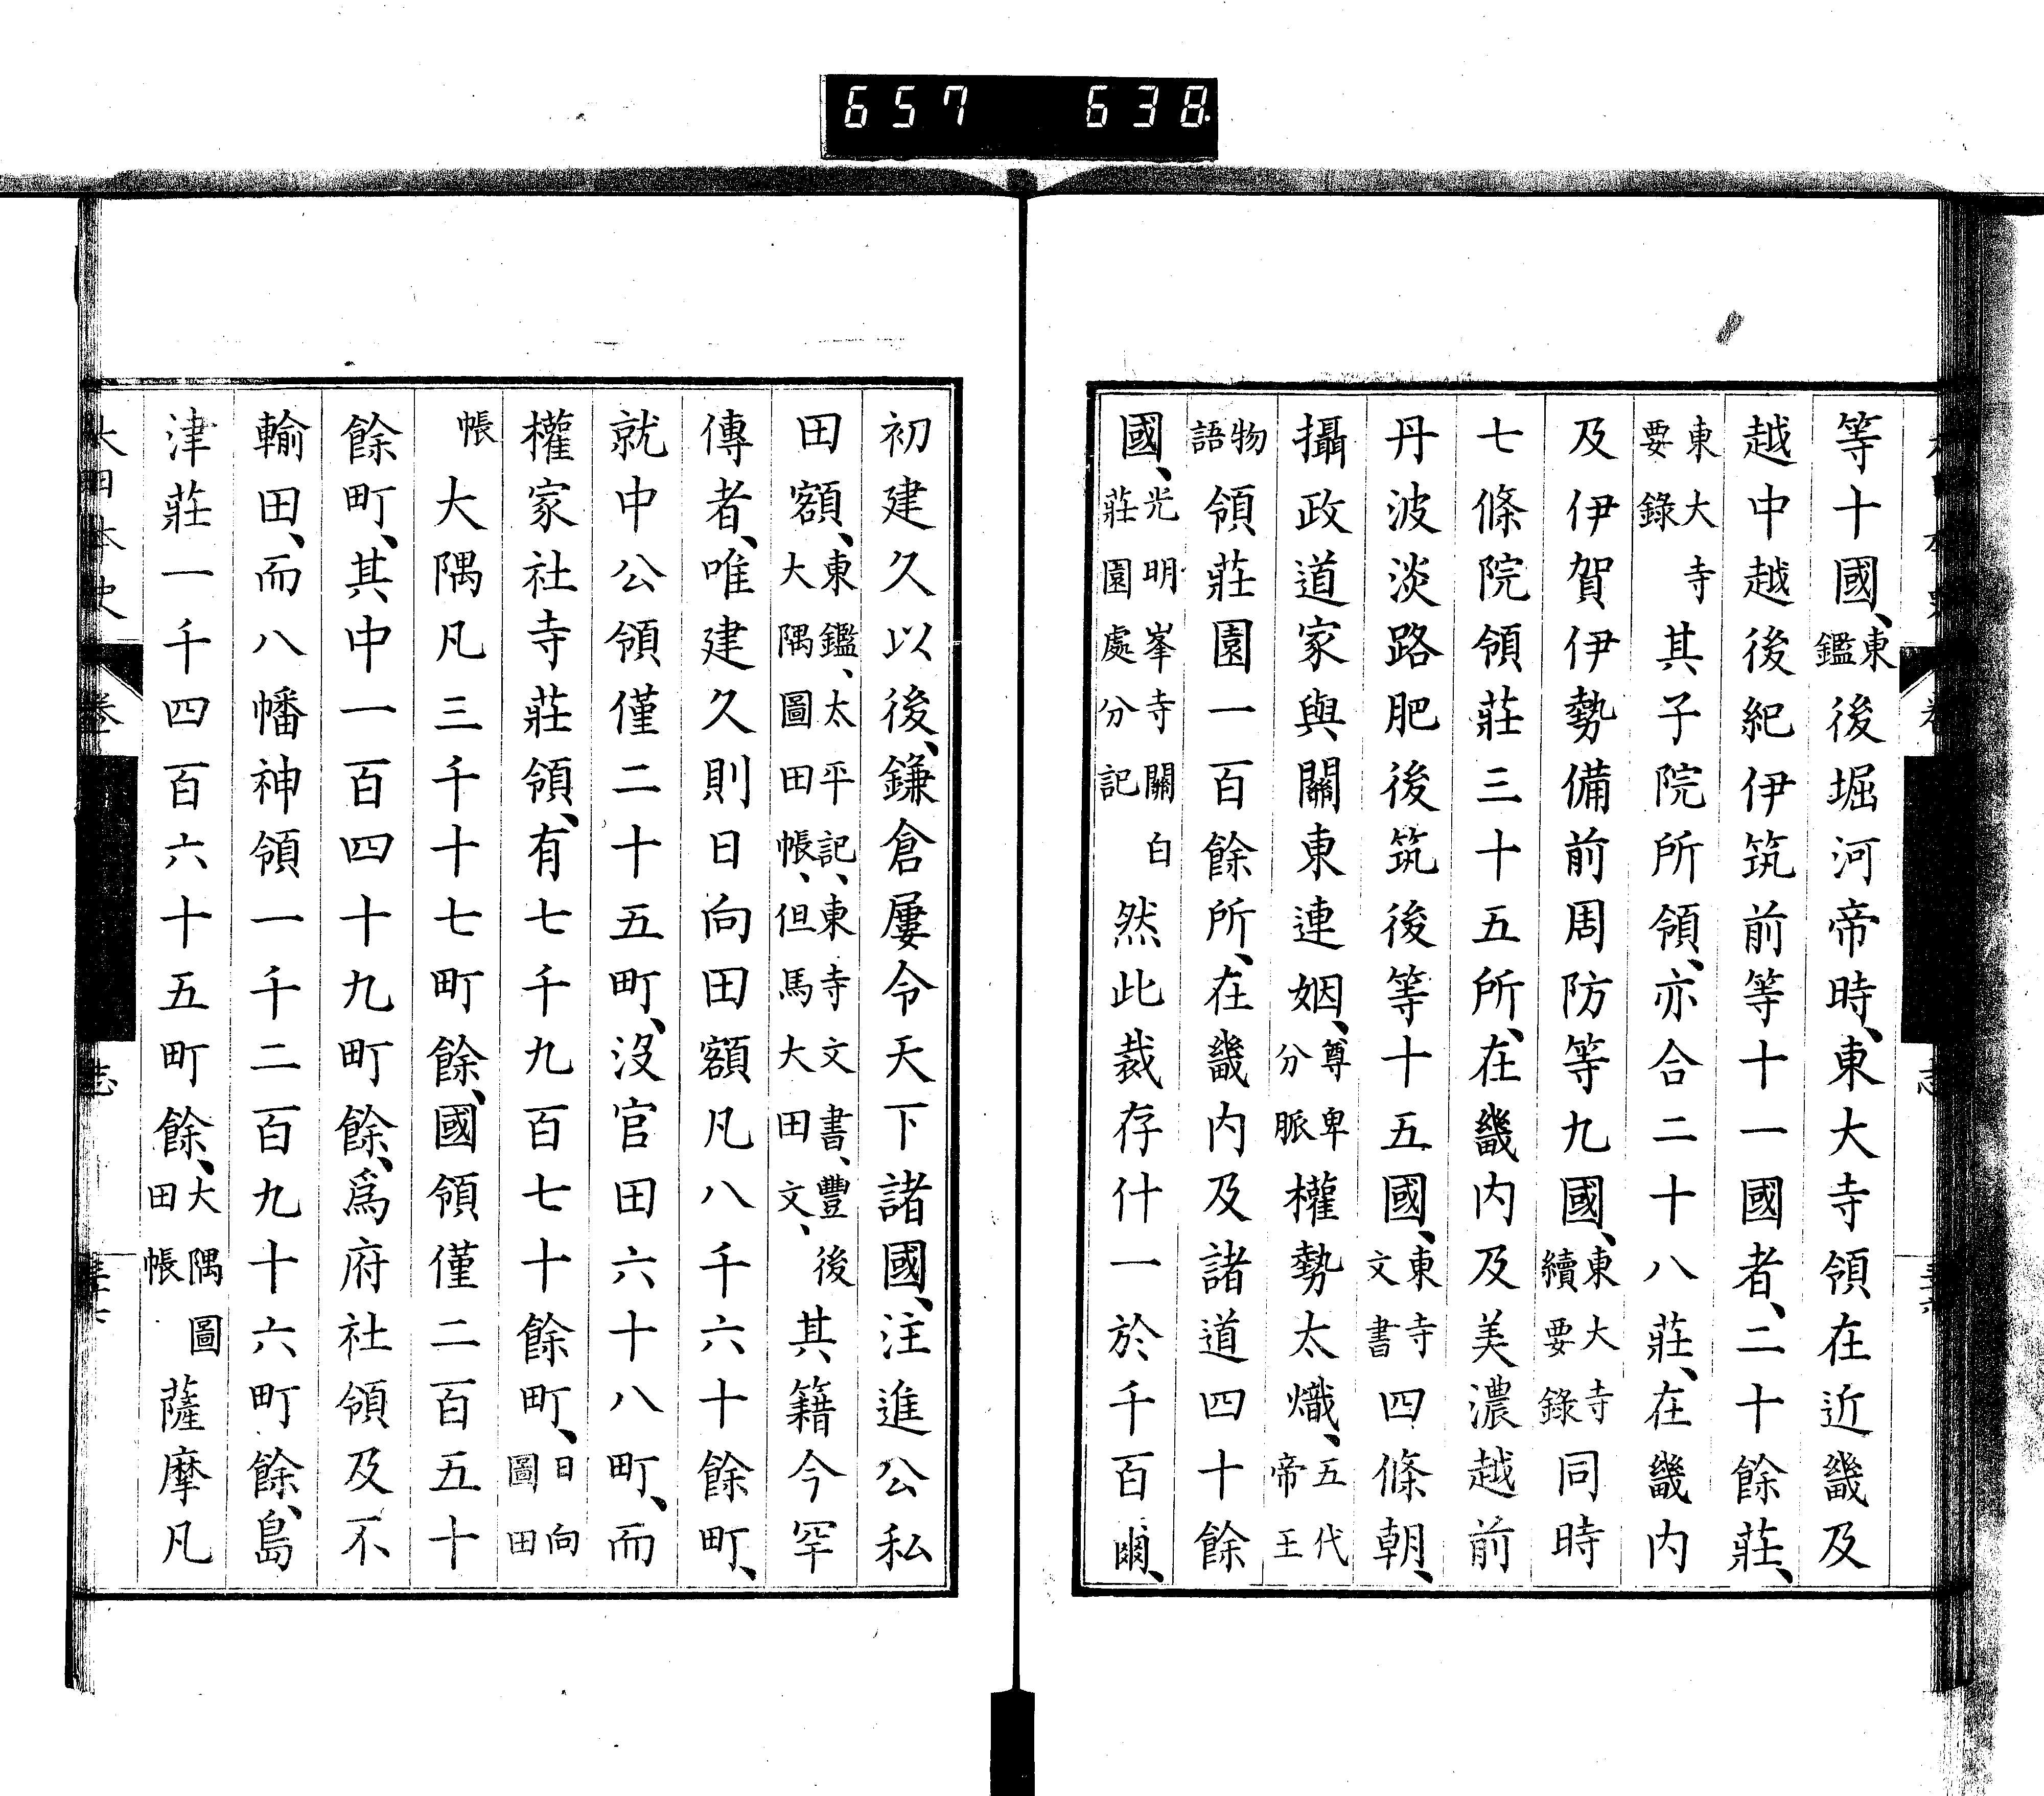 657 638
等十國、東鑑後堀河帝時、東大寺領在近畿及
越中越後紀伊筑前等十一國者、二十餘莊、
東大寺要錄其子院所領、亦合二十八莊、在畿內
及伊賀伊勢備前周防等九國、東大寺續要錄同時
七條院領莊三十五所、在畿内及美濃越前
丹波淡路肥後筑後等十五國、東寺文書四條朝、
攝政道家與關東連姻、尊卑分脈權勢太熾、五代帝王
物語領莊園一百餘所、在畿内及諸道四十餘
國、光明峯寺關白莊園處分記然此裁存什一於千百爾、
初建久以後、鎌倉屢令天下諸國、注進公私
田額、東鑑、太平記、東寺文書、豐後大隅圖田帳、但馬大田文、其籍今罕
傳者、唯建久則日向田額凡八千六十餘町、
就中公領僅二十五町、沒官田六十八町、而
權家社寺莊領、有七千九百七十餘町、日向圖田
帳大隅凡三千十七町餘、國領僅二百五十
餘町、其中一百四十九町餘、爲府社領及不
輸田、而八幡神領一千二百九十六町餘、島
津莊一千四百六十五町餘、大隅圖田帳薩摩凡
大日本史 卷 志